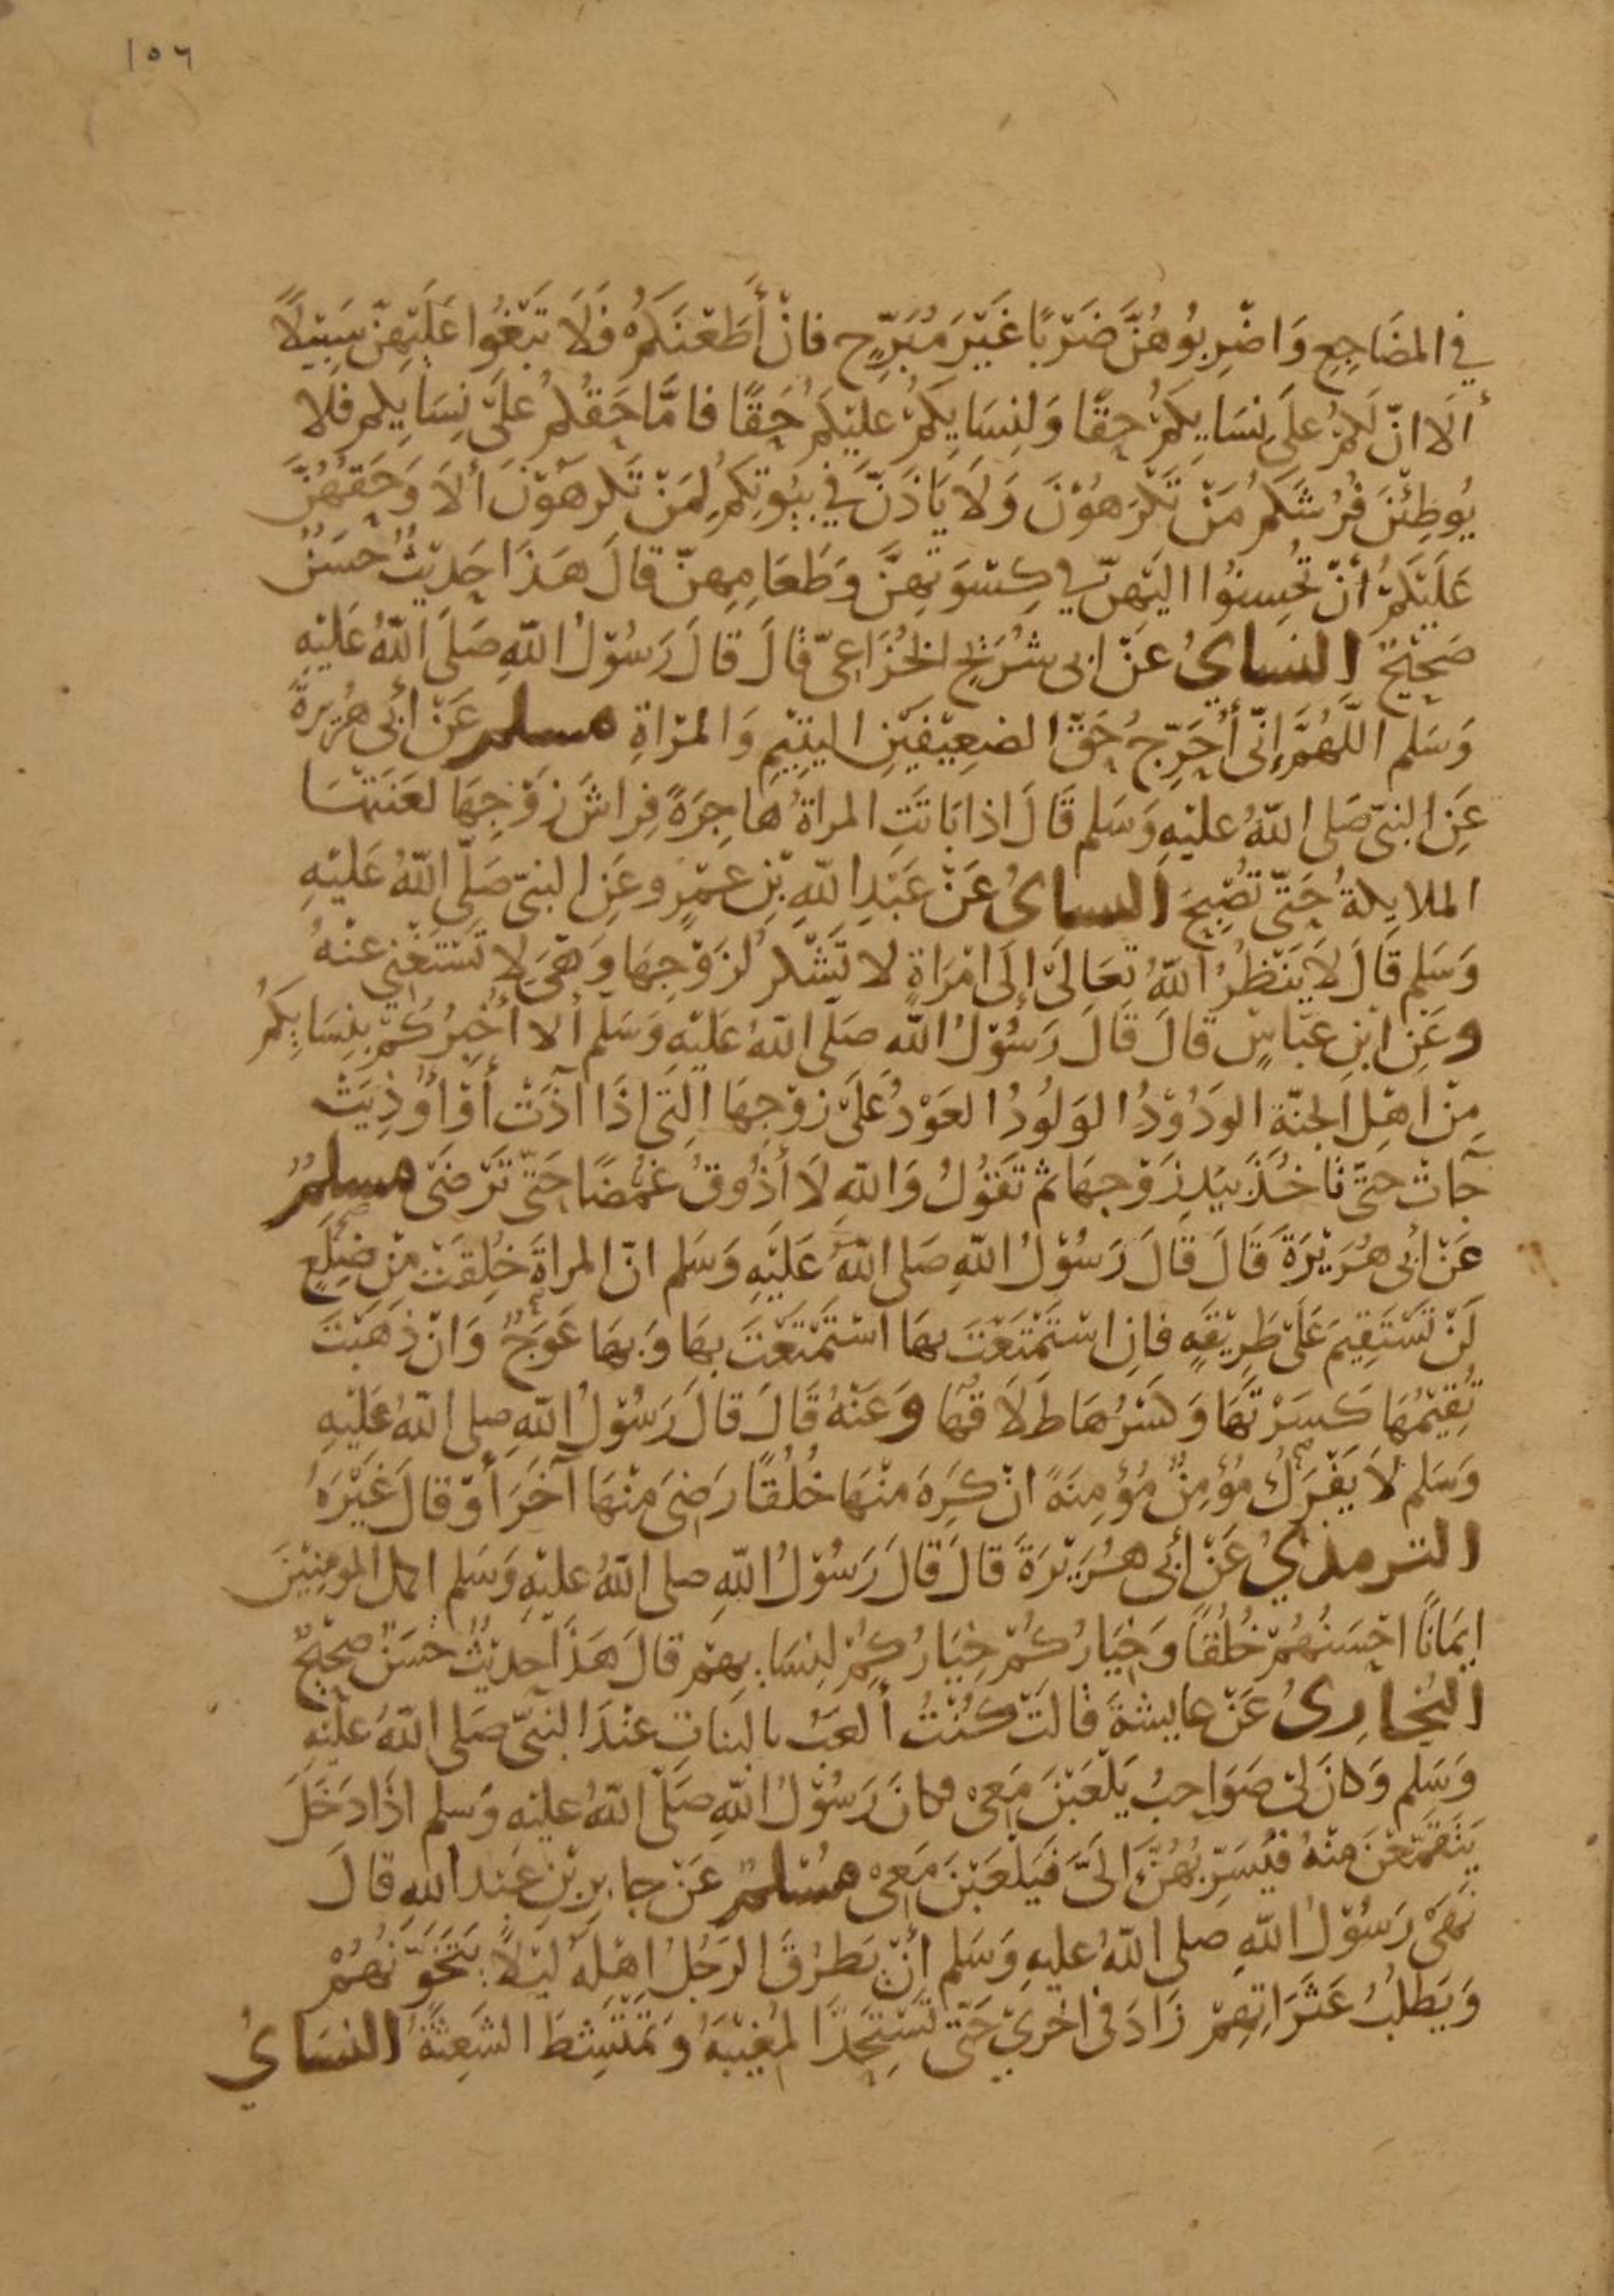 ١٥٦
في المضَاجِعِ وَاضْرِبُوهُنَّ ضَرْبًا غَيْرَ مُبَرِّحٍ فان أَطَعْنَكُمْ فَلَا تَبْغُوا عَلَيْهِنّ سَبِيْلًا
أَلَا انّ لَكُمْ عَلَى نِسَايِكُمْ حقًّا وَلِنِسَايِكُمْ عَليْكُمْ حَقًّا فامَّا حَقُكُمْ عَلَى نِسَايِكم فلا
يُوطِئْنَ فُرُشَكُمْ مَنْ تَكْرَهُوْنَ وَلَا يَاذَنَّ في بيُوتِكُمْ لِمَنْ تَكرهوْنَ أَلَا وَحَقّهُنَّ
عَلَيْكُمْ أَنْ تُحْسِنُوا اليْهِنّ في كِسْوَتِهِنَّ وَطَعَامِهِنّ قالَ هَذَا حَدِيْثٌ حَسَنٌ
صَحِيْحٌ النساي عَنْ ابى شُرَيْحٍ الخُزَاعِىّ قالَ قالَ رَسُوْلُ اللهِ صَلَى اللهُ عَلَيْهِ
وَسَلم اللَّهُمَّ إِنّى أُحَرِّجُ حَقّ الضعِيْفَيْنِ اليَتِيْمِ وَالمرْاةِ مسلم عَنْ أبى هُرَيرةَ
عَنِ النبىّ صَلى اللهُ عليْهِ وَسَلم قَالَ اذا بَاتَتِ المراةُ هَاجِرَةً فِرَاشَ زَوْجِهَا لعَنَتْهَا
الملايكةُ حَتّى تُصْبِحَ النساىُ عَنْ عَبْدِ اللهِ بْنِ عمْرٍو عَنِ النبىّ صَلّى اللهُ عَليْهِ
وَسَلم قَالَ لَا يَنْظُرُ اللهُ تعَالَىَ إلَى امْرَاةٍ لا تَشْكرُ لزَوْجِهَا وَهْىَ لا تَسْتَغْنِي عنْهُ
وعَنِ ابْنِ عَبّاسٍ قالَ قَالَ رَسُوْلُ الله صَلَى اللهُ عَلَيْهِ وَسَلم أَلا أُخْبِرُكُمْ بنِسَايِكُمْ
مِنْ اهْلِ الجنّةِ الوَدُوْدُ الوَلُودُ العَوْدُ عَلَى زَوْجِهَا الّتى اذَا آذَتْ أَوْ أُوْذِيَتْ
جآتْ حَتّى تَاخُذَ بِيَدِ زَوْجِهَا ثمّ تَقُوْلُ وَاللهِ لَا أَذُوقُ غُمْضًا حَتّى تَرْضَى مسلمٌ
عَنْ ابى هُرَيْرَةَ قَالَ قَالَ رَسُوْلُ اللهِ صَلى اللهُ عَلَيْهِ وَسَلم انّ المراةَ خُلِقَتْ مِنْ ضِلَعٍ
لَنْ تَسْتَقِيمَ عَلَى طَرِيْقَةٍ فانِ اسْتَمْتَعْتَ بهَا اسْتَمْتَعْتَ بهَا وَبهَا عَوَجٌ وَانْ ذَهَبْتَ
تُقِيْمُهَا كَسَرْتَهَا وَكسْرُهَا طَلَاقُهَا وَعَنْهُ قَالَ قالَ رَسُوْلُ اللهِ صلى اللهُ عَلَيْهِ
وَسَلم لَا يَفْرَكْ مُؤْمِنٌ مُؤْمِنَةً انْ كَرِهَ منْهَا خُلُقًا رَضِىَ مِنْهَا آخَرَ أَوْ قالَ غَيْرَهُ
الترمذيُ عَنْ أبى هُرَيْرَةَ قالَ قَالَ رَسُوْلُ اللهِ صلى اللهُ عليْهِ وَسَلم اكمل المومِنِيْنَ
ايمَانًا احْسَنُهُمْ خُلُقًا وَخيَارُكُمْ خيَارُكُمْ لِنِسَايِهِمْ قَالَ هَذَا حَدِيْثٌ حَسَنٌ صحِيْحٌ
البُخارِىُ عَنْ عايشةَ قالتْ كُنْتُ أَلعَبُ بالبناتِ عنْدَ النبىّ صَلى اللهُ علَيْهِ
وَسَلم وَكانَ لى صَوَاحِبُ يَلْعَبْنَ مَعِى فكانَ رَسُوْلُ اللهِ صَلّى اللهُ عليْهِ وَسلم اذَا دَخَلَ
يَنْقَمِعْنَ منْهُ فيُسَرّبُهُنَّ الَىّ فَيَلْعَبْنَ مَعِىْ مُسْلمٌ عَنْ جابِرِ بْنِ عَبْدِ اللهِ قالَ
نَهَىْ رَسُوْلُ اللهِ صلى اللهُ عليهِ وَسَلم أَنْ يَطرُقَ الرَجُلُ اهْلَهُ ليْلًا يَتَخَوَّنُهُمْ
وَيَطلُبُ عَثَرَاتِهِمْ زَادَ فى اخْرىَ حَتّى تَسْتَحِدّ المُغِيْبَةُ وَتمْتَشِطَ الشَعِثَةُ النسَايُ